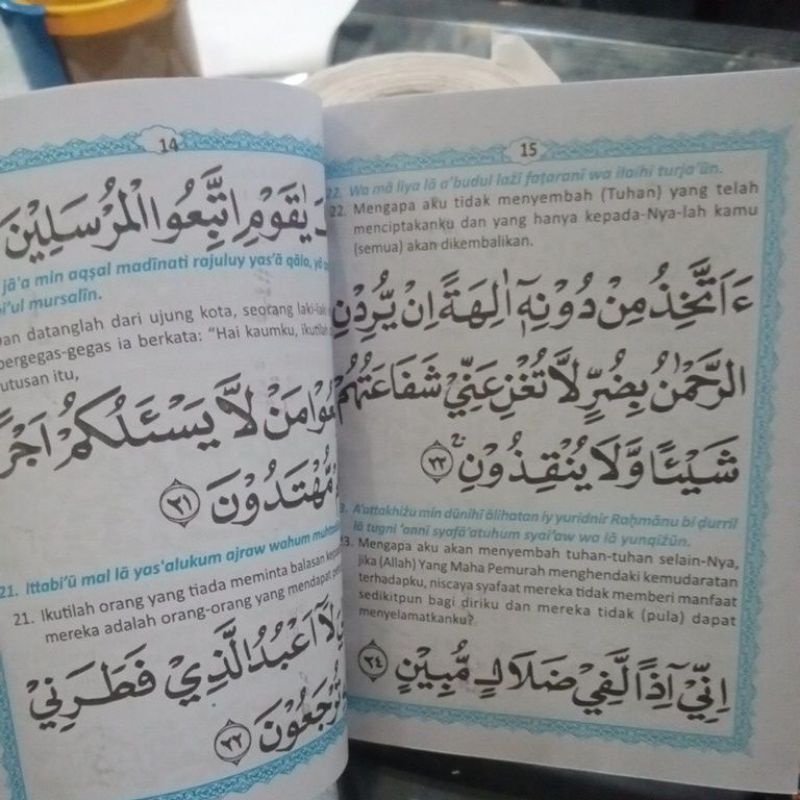 14
يٰقَوْمِ اتَّبِعُوا الْمُرْسَلِيْنَ
jā'a min aqṣal madīnati rajuluy yas'ā qāla, yā
i'ul mursalīn.
an datanglah dari ujung kota, seorang laki-laki
bergegas-gegas ia berkata: "Hai kaumku, ikutilah
utusan itu,
مَنْ لَّا يَسْـَٔلُكُمْ اَجْرًا
مُّهْتَدُوْنَ ٢١
21. Ittabi'ū mal lā yas'alukum ajraw wahum
21. Ikutilah orang yang tiada meminta balasan
mereka adalah orang-orang yang mendapat
لَآ اَعْبُدُ الَّذِيْ فَطَرَنِيْ
تُرْجَعُوْنَ ٢٢
15
22. Wa mā liya lā a'budul lażī faṭaranī wa ilaihi turja'ūn.
22. Mengapa aku tidak menyembah (Tuhan) yang telah
menciptakanku dan yang hanya kepada-Nya-lah kamu
(semua) akan dikembalikan.
ءَاَتَّخِذُ مِنْ دُوْنِهٖٓ اٰلِهَةً اِنْ يُّرِدْنِ
الرَّحْمٰنُ بِضُرٍّ لَّا تُغْنِ عَنِّيْ شَفَاعَتُهُمْ
شَيْـًٔا وَّلَا يُنْقِذُوْنِ ٢٣
A'attakhiżu min dūnihī ālihatan iy yuridnir Raḥmānu bi ḍurril
lā tugni 'annī syafā'atuhum syai'aw wa lā yunqiżūn.
Mengapa aku akan menyembah tuhan-tuhan selain-Nya,
jika (Allah) Yang Maha Pemurah menghendaki kemudaratan
terhadapku, niscaya syafaat mereka tidak memberi manfaat
sedikitpun bagi diriku dan mereka tidak (pula) dapat
menyelamatkanku?
اِنِّيْٓ اِذًا لَّفِيْ ضَلَالٍ مُّبِيْنٍ ٢٤